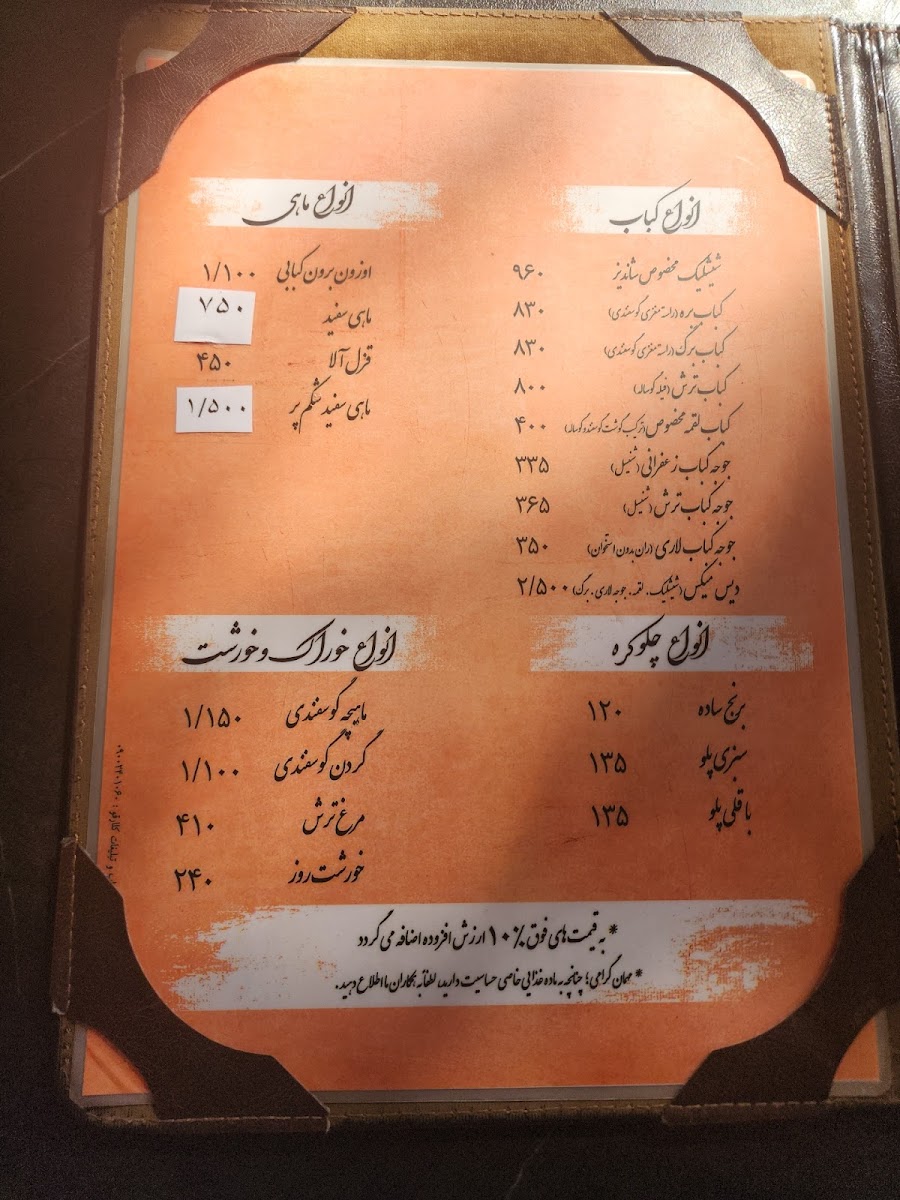 انواع کباب
شیشلیک مخصوص شاندیز ۹۶۰
کباب بره (راسته مغزی گوسفندی) ۸۳۰
کباب برگ (راسته مغزی گوسفندی) ۸۳۰
کباب ترش (فیله گوساله) ۸۰۰
کباب لقمه مخصوص (ترکیب گوشت گوسفند و گوساله) ۴۰۰
جوجه کباب زعفرانی (شنیسل) ۳۳۵
جوجه کباب ترش (شنیسل) ۳۶۵
جوجه کباب لاری (ران بدون استخوان) ۳۵۰
دیس میکس (شیشلیک، لقمه، جوجه لاری، برگ) ۲/۵۰۰
انواع ماهی
اوزون برون کبابی ۱/۱۰۰
ماهی سفید ۷۵۰
قزل آلا ۴۵۰
ماهی سفید شکم پر ۱/۵۰۰
انواع چلو کره
برنج ساده ۱۲۰
سبزی پلو ۱۳۵
باقلی پلو ۱۳۵
انواع خوراک و خورشت
ماهیچه گوسفندی ۱/۱۵۰
گردن گوسفندی ۱/۱۰۰
مرغ ترش ۴۱۰
خورشت روز ۲۴۰
* به قیمت های فوق ۱۰% ارزش افزوده اضافه می گردد
* مهمان گرامی؛ چنانچه به ماده غذایی خاصی حساسیت دارید، لطفا به همکاران ما اطلاع دهید.